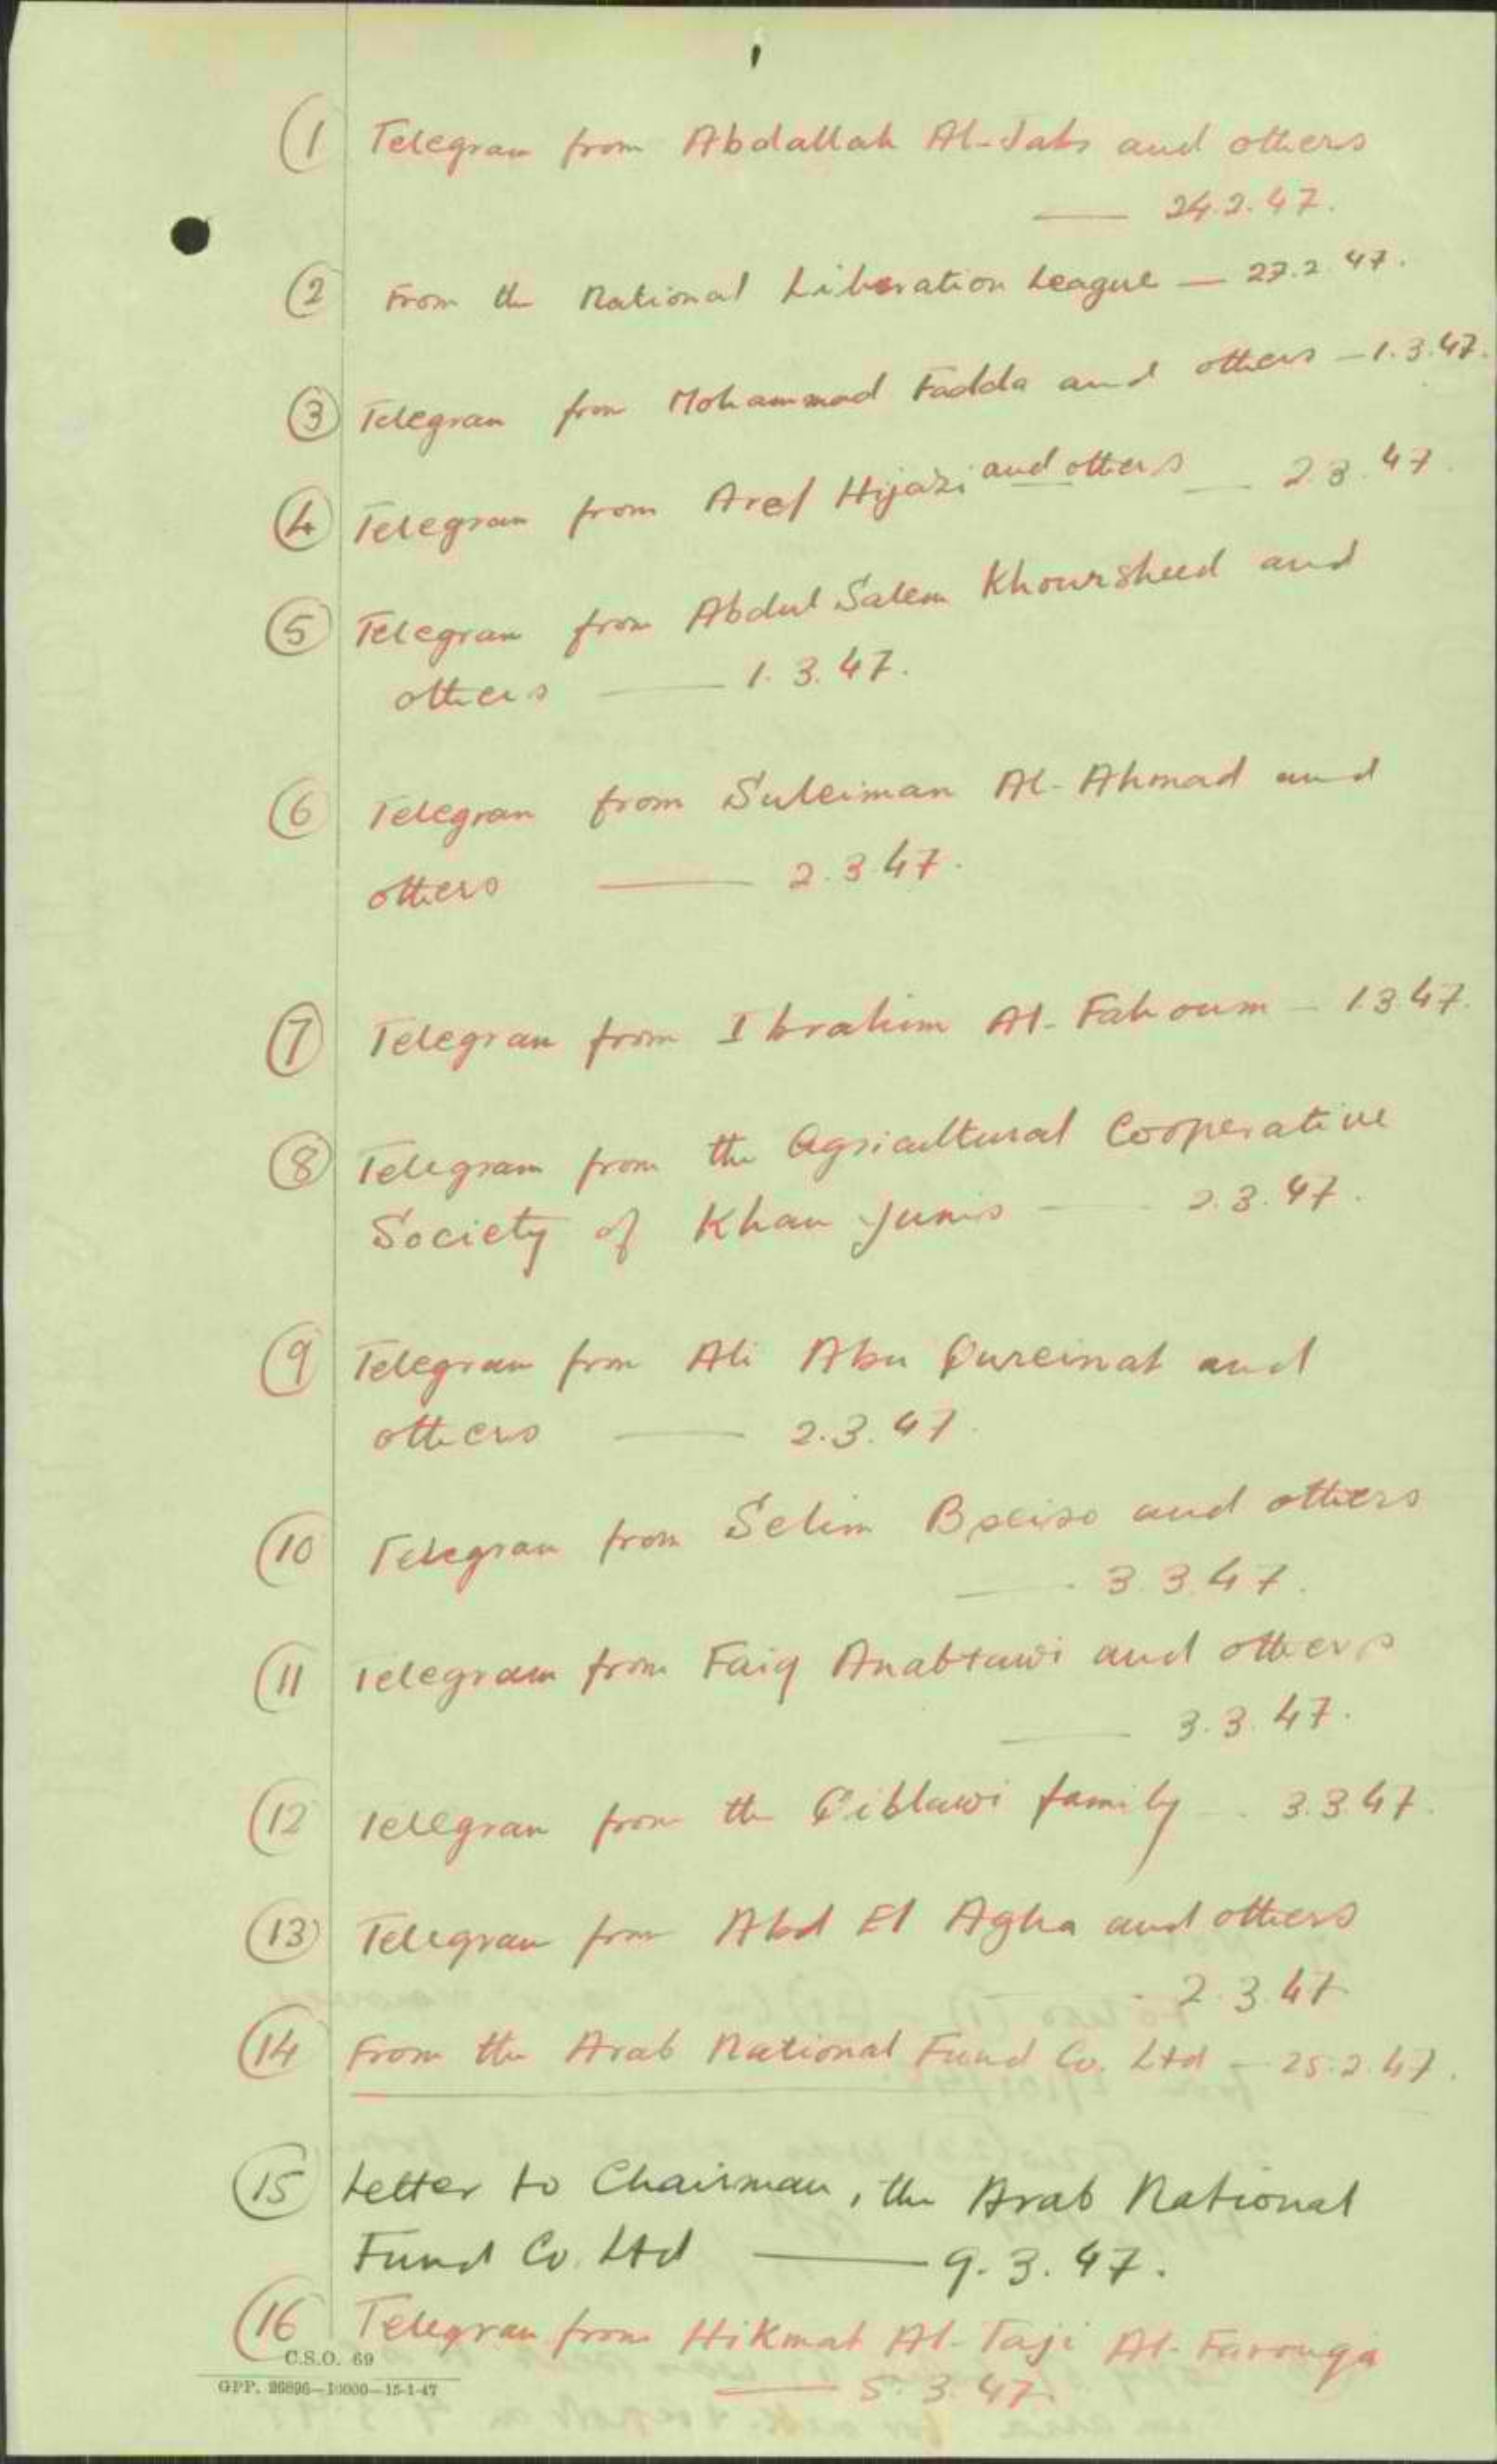 1
(1 Telegram from Abdallah Al- and others
— 24.2.47.
(2) From the National Liberation League — 27.2.47.
(3) Telegram from Mohammad Fadda and others — 1.3.47.
(4) Telegram from Aref Hijazi and others — 2.3.47.
(5) Telegram from Abdul Salem Khoursheed and
others — 1.3.47.
(6) Telegram from Suleiman Al-Ahmad and
others — 2.3.47.
(7) Telegram from Ibrahim Al-Fahoum — 1.3.47.
(8) Telegram from the Agricultural Cooperative
Society of Khan Junis — 2.3.47.
(9) Telegram from Ali Abu Qureinat and
others — 2.3.47.
(10) Telegram from Selim Bseiso and others
— 3.3.47.
(11 Telegram from Faiq Anabtawi and others
— 3.3.47.
(12 Telegram from the Qiblawi family — 3.3.47.
(13) Telegram from Abd El Agha and others
- 2.3.47
(14) From the Arab National Fund Co. Ltd — 25.2.47.
(15) Letter to Chairman, the Arab National
Fund Co. Ltd — 9.3.47.
(16 Telegram from Hikmat Al-Taji Al-Farouqa
— 5.3.47.
C.S.O. 69
GPP. 26896—10000—15-1-47